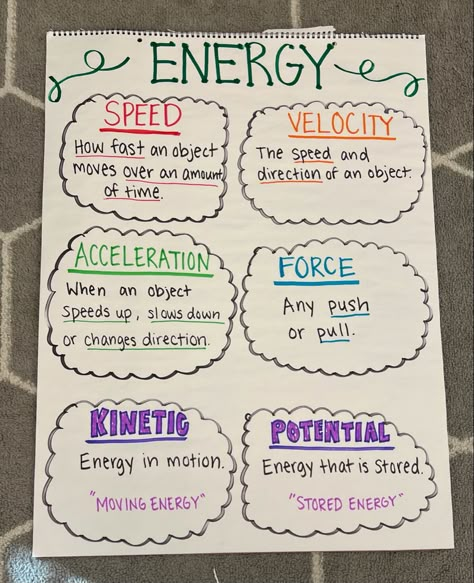 ENERGY
SPEED
How fast an object
moves over an amount
of time.
VELOCITY
The speed and
direction of an object.
ACCELERATION
When an object
speeds up, slows down
or changes direction.
FORCE
Any push
or pull.
KINETIC
Energy in motion.
"MOVING ENERGY"
POTENTIAL
Energy that is stored.
"STORED ENERGY"